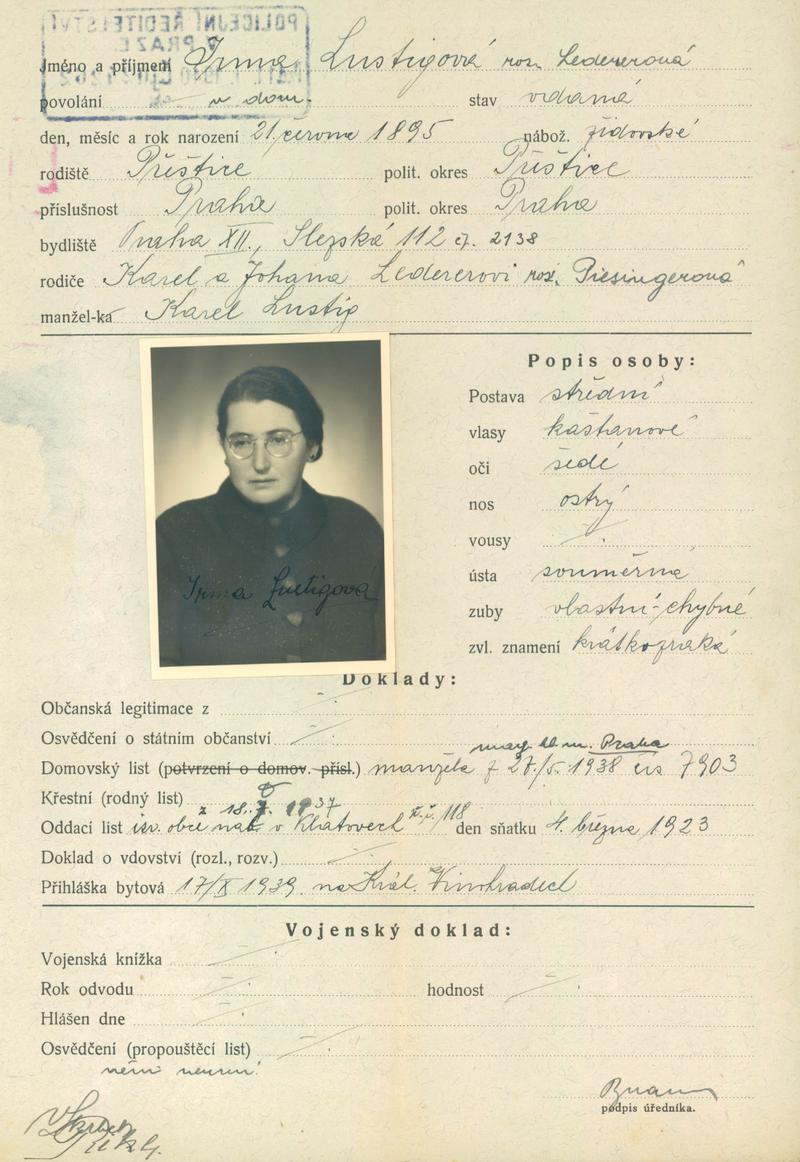 POLICEJNÍ ŘEDITELSTVÍ
V PRAZE
Jméno a příjmení Irma Lustigová roz. Ledererová
povolání v dom. stav vdaná
den, měsíc a rok narození 21. června 1895 nábož. židovské
rodiště Přeštice polit. okres Přeštice
příslušnost Praha polit. okres Praha
bydliště Praha XII., Slezská 112 čp. 2138
rodiče Karel a Johana Ledererovi roz. Piesingerová
manžel-ka Karel Lustig
Popis osoby:
Postava střední
vlasy kaštanové
oči šedé
nos ostrý
vousy
ústa souměrná
zuby vlastní-chybné
zvl. znamení krátkozraká
Irma Lustigová
Doklady:
Občanská legitimace z
Osvědčení o státním občanství
mag. hl. m. Praha
Domovský list (potvrzení o domov. přísl.) manžela z 27./5. 1938 čís 7903
Křestní (rodný list)
z 18. 1937
Oddací list isr. obce náb. v Klatovech /118 den sňatku 4. března 1923
Doklad o vdovství (rozl., rozv.)
Přihláška bytová 17/X 1939 na Král. Vinohradech
Vojenský doklad:
Vojenská knížka
Rok odvodu hodnost
Hlášen dne
Osvědčení (propouštěcí list)
podpis úředníka.